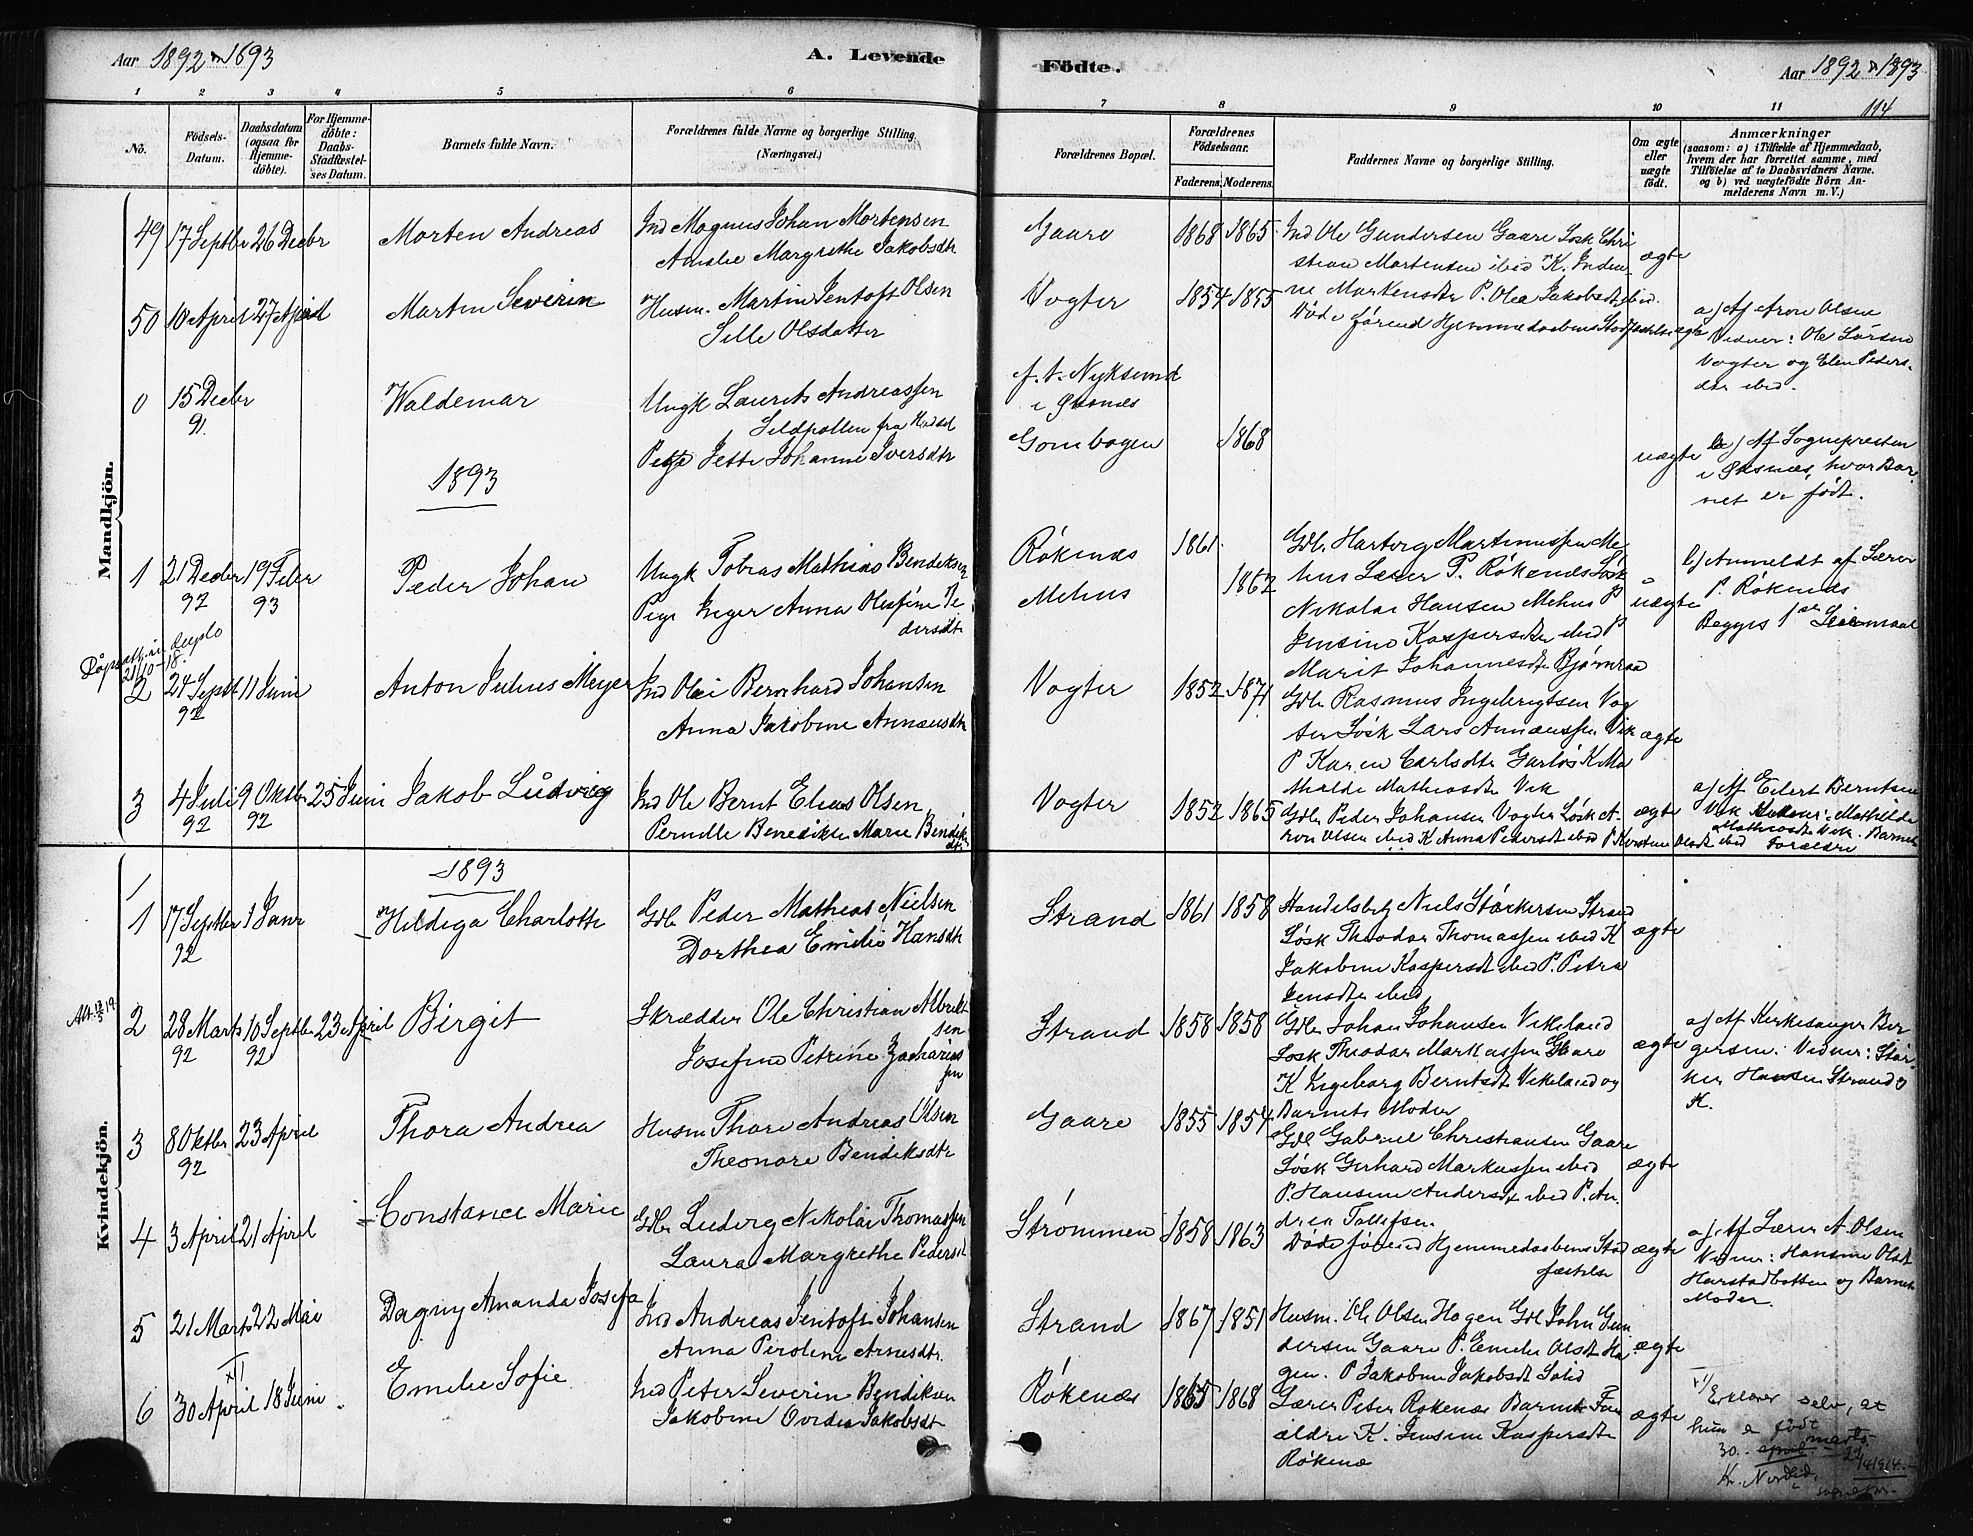 Aar 1892 & 1893
A. Levende
Födte.
Aar 1892 & 1893
114
1 2 3 4 5 6 7 8 9 10 11
No.
Födsels-Datum.
Daabsdatum (ogsaa for Hjemme-döbte).
For Hjemme-döbte: Daabs-Stadfæstel-ses Datum.
Barnets fulde Navn.
Forældrenes fulde Navne og borgerlige Stilling. (Næringsvei.)
Forældrenes Bopæl.
Forældrenes Födselsaar.
Faderens. Moderens.
Faddernes Navne og borgerlige Stilling.
Om ægte eller uægte født.
Anmærkninger (saasom: a) i Tilfælde af Hjemmedaab, hvem der har forrettet samme, med Tilföielse af to Daabsvidners Navne, og b) ved uægtefödte Börn An-melderens Navn m. V.)
Mandkjön.
49 17 Septbr 26 Decbr Morten Andreas
Ind Magnus Johan Mortensen
Amalie Margrethe Jakobsdtr
Gaare 1868 1865
Ind Ole Gundersen Gaare Løsk Chri
stian Mortensen ibid K. Inden
ne Markensdtr P. Olea Jakobsdt ibid.
ægte
50 10 April 27 April Martin Severin
Husm. Martin Jentoft Olsen
Sille Olsdatter
Vogter 1854 1855
Døde førend Hjemmedaabens Stadfæstelse ægte
a) Af Aron Olsen
Vidner: Ole Larsen
Vogter og Elen Peders.
dtr ibid.
0 15 Decbr 91. Waldemar
Ungk Laurits Andreassen
Sildpollen fra Hadsel
Pige Jette Johanne Iversdtr
f. t. Nyksund
i Øksnes
Gombogen 1868
uægte
b) Af Sognepresten
i Øksnæs, hvor Bar
net er født.
1893
1 21 Decbr 92 19 Febr 93 Peder Johan
Ungk Tobias Mathias Bendiksen
Pige Inger Anna Olufine Pe
dersdtr
Rökenæs 1861.
Mehus 1862
Gdb. Hartvig Martinussen Me
hus Lærer P. Rökenæs Løsk
Nikolai Hansen Mehus P
Jensine Kaspersdtr ibid P
Marit Johannesdtr Bjørnraa
uægte
b) Anmeldt af Lærer
P. Rökenæs
Begges 1ste Leiermaal
21/10-18.
2 24 Septbr 92 11 Juni Anton Julius Meyer
Ind Olai Bernhard Johansen
Anna Jakobine Annæusdtr
Vogter 1852 1871
Gdb Rasmus Ingebrigtsen Vog
ter Løsk Lars Annæussen Vik
P Karen Carlsdtr Garløs K Ma
thilde Mathiasdtr Vik
ægte
3 4 Juli 92 9 Oktbr 92 25 Juni Jakob Ludvig
Ind Ole Bernt Elias Olsen
Pernille Benedikte Marie Bendiks
dtr
Vogter 1852 1865
Gdb Peder Johansen Vogter Løsk A-
ron Olsen ibid K Anna Pedersdt ibid P Kirstine Olsdt ibid
ægte
a) Af Eilert Berntsen
Vik Vidner: Mathilde
Mathiasdt Vik. Barnets
Forældre
Kvindekjön.
1893
1 17 Septbr 92 1 Janr Hildiga Charlotte
Gdb Peder Mathias Nielsen
Dorthea Emilie Hansdtr
Strand 1861 1858
Handelsbetj Niels Størkersen Strand
Løsk Theodor Thomassen ibid K
Jakobine Kaspersdt ibid P. Petra
Jensdtr ibid
ægte
2 28 Marts 92 10 Septbr 92 23 April Birgit
Skrædder Ole Christian Albrikt
sen
Josefine Petrine Zacharias
sen
Strand 1858 1858
Gdb Johan Johansen Vikeland
Løsk Theodor Markussen Gaare
K Ingeborg Berntsdt Vikeland og
Barnets Moder
ægte
a) Af Kirkesanger Bir
gersen. Vidner: Stør
ker Hansen Strand &
K.
3 8 Oktbr 92 23 April Thora Andrea
Husm Thore Andreas Olsen
Theonore Bendiksdtr
Gaare 1855 1854
Gdb Gabriel Christiansen Gaare
Løsk Gerhard Markussen ibid
P. Hansine Andersdt ibid P. An
drea Tollefsen
ægte
4 3 April 21 April Constance Marie
Gdb Ludvig Nikolai Thomassen
Laura Margrethe Pedersdt
Strømmen 1858 1863
Døde førend Hjemmedaabens Stad
fæstelse
ægte
a) Af Lærer A Olsen
Vidner: Hansine Olsdt
Harstadbotten og Barnets
Moder.
5 21 Marts 22 Mai Dagny Amanda Josefa
Ind Andreas Jentoft Johansen
Anna Peroline Arnesdtr.
Strand 1867 1851
Husm. Ole Olsen Hagen Gdb John Gun
dersen Gaare P. Emelie Olsdt Ha
gen. P Jakobine Jakobsdt
ægte
6 30 April 18 Juni Emelie Sofie
Ind Peter Severin Bendiksen
Jakobine Ovidia Jakobsdt
Rökenæs 1865 1868
Lærer Peter Rökenæs Barnets For
ældre K. Jensine Kaspersdtr
Rökenæs
ægte
x) Erklærer selv, at
hun er født
30. april marts